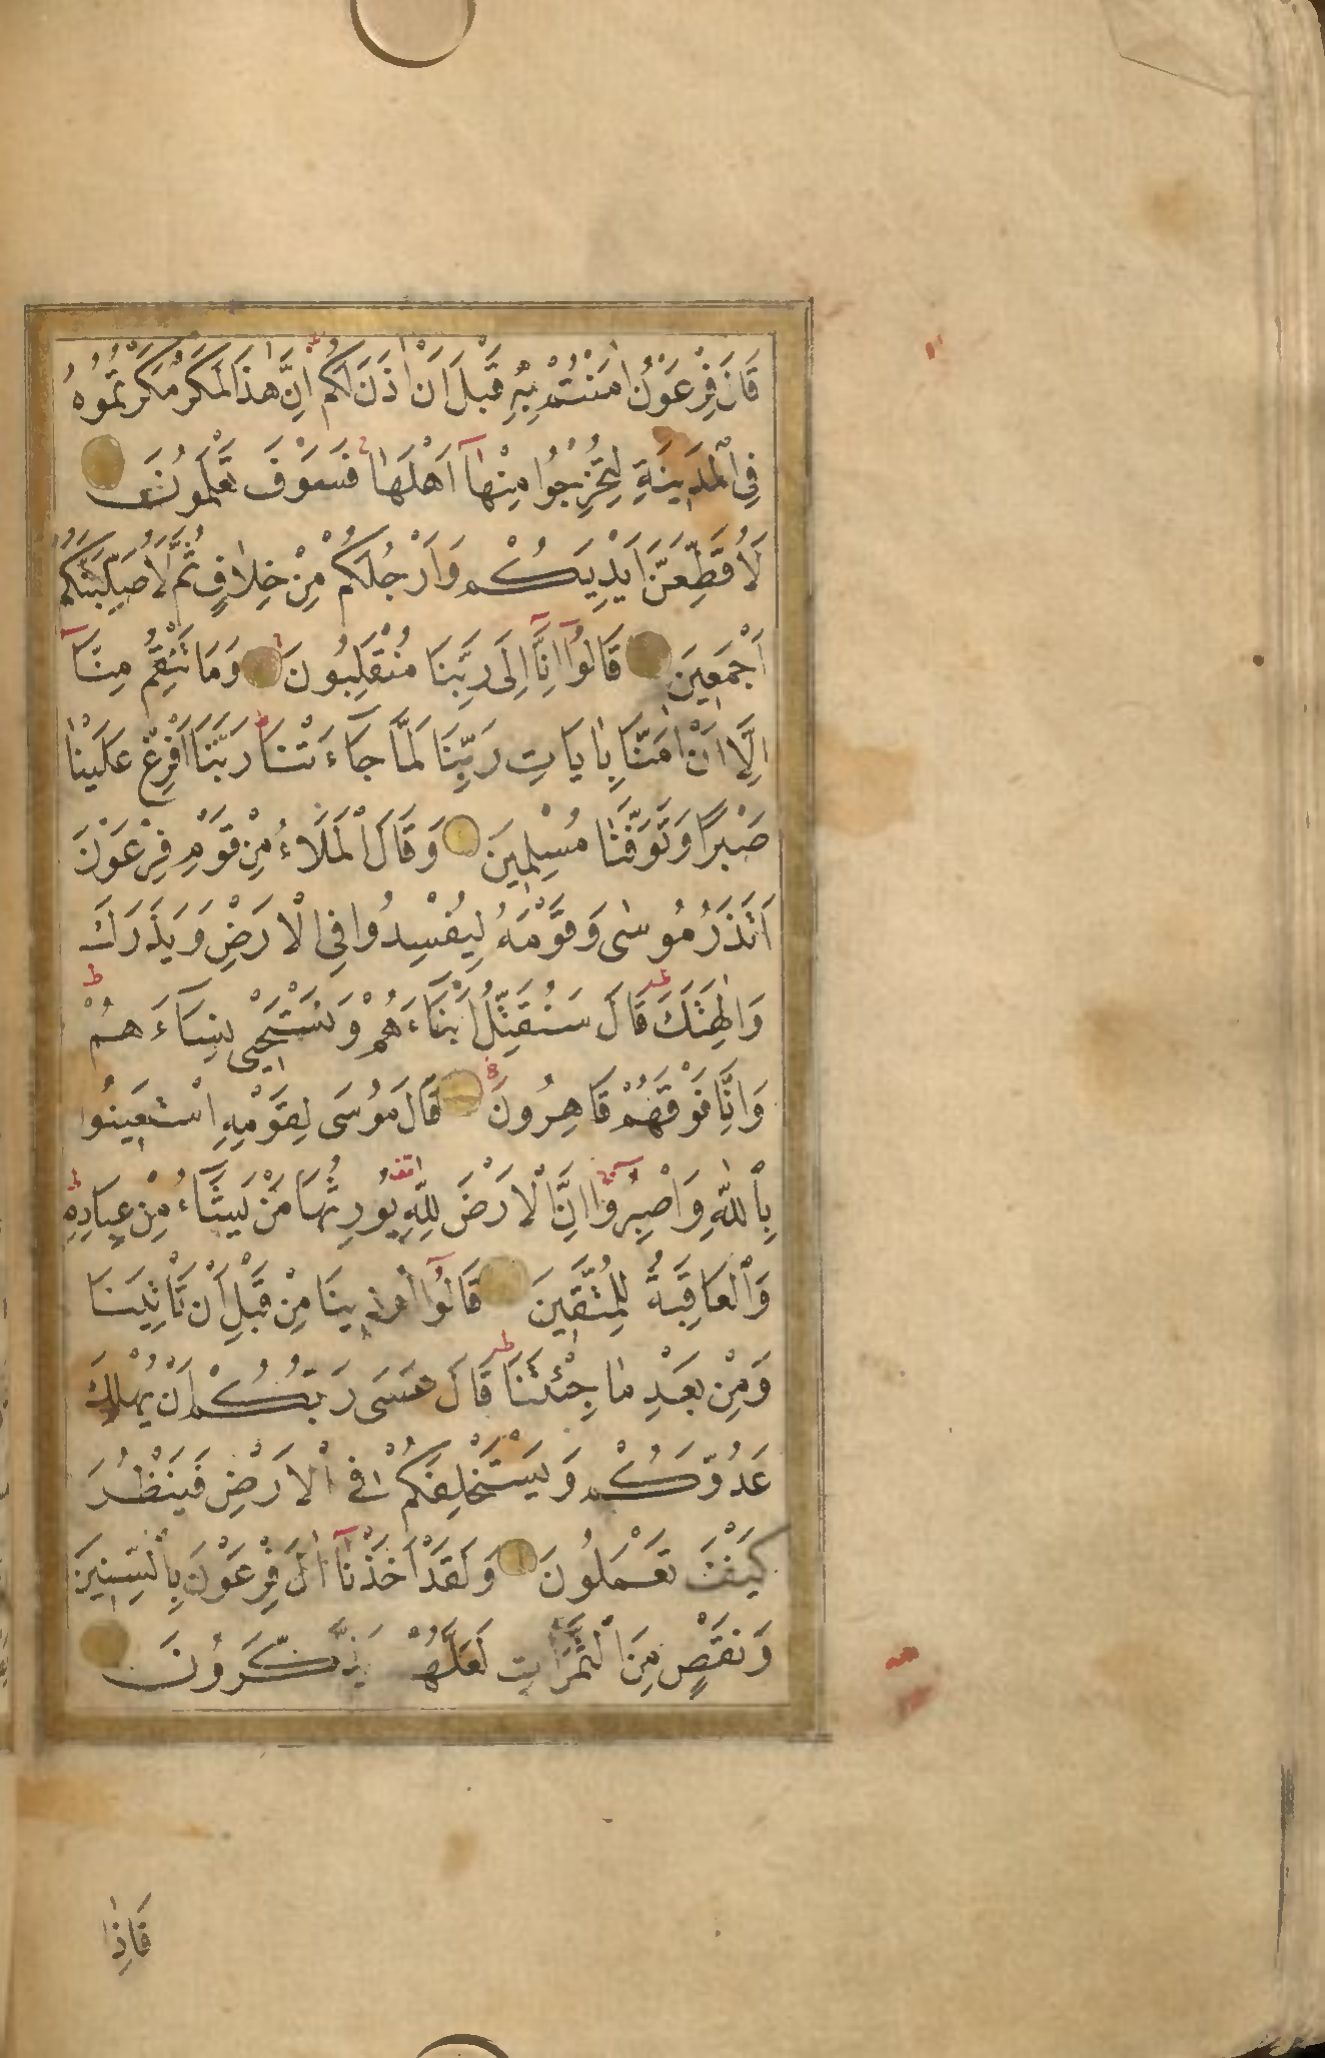 قَالَ فِرْعَوْنُ اٰمَنْتُمْ بِهِ قَبْلَ اَنْ اٰذَنَ لَكُمْ اِنَّ هٰذَا لَمَكْرٌ مَكَرْتُمُوهُ
فِي الْمَدِينَةِ لِتُخْرِجُوا مِنْهَا اَهْلَهَا فَسَوْفَ تَعْلَمُونَ
لَاُقَطِّعَنَّ اَيْدِيَكُمْ وَاَرْجُلَكُمْ مِنْ خِلَافٍ ثُمَّ لَاُصَلِّبَنَّكُمْ
اَجْمَعِينَ قَالُوا اِنَّا اِلَى رَبِّنَا مُنْقَلِبُونَ وَمَا تَنْقِمُ مِنَّا
اِلَّا اَنْ اٰمَنَّا بِاٰيَاتِ رَبِّنَا لَمَّا جَاءَتْنَا رَبَّنَا اَفْرِغْ عَلَيْنَا
صَبْرًا وَتَوَفَّنَا مُسْلِمِينَ وَقَالَ الْمَلَاءُ مِنْ قَوْمِ فِرْعَوْنَ
اَتَذَرُ مُوسٰى وَقَوْمَهُ لِيُفْسِدُوا فِي الْاَرْضِ وَيَذَرَكَ
وَاٰلِهَتَكَ قَالَ سَنُقَتِّلُ اَبْنَاءَهُمْ وَنَسْتَحْيِى نِسَاءَهُمْ
وَاِنَّا فَوْقَهُمْ قَاهِرُونَ قَالَ مُوسَى لِقَوْمِهِ اسْتَعِينُوا
بِاللّٰهِ وَاصْبِرُوا اِنَّ الْاَرْضَ لِلّٰهِ يُورِثُهَا مَنْ يَشَاءُ مِنْ عِبَادِهِ
وَالْعَاقِبَةُ لِلْمُتَّقِينَ قَالُوا اُوذِينَا مِنْ قَبْلِ اَنْ تَاْتِيَنَا
وَمِنْ بَعْدِ مَا جِئْتَنَا قَالَ عَسَى رَبُّكُمْ اَنْ يُهْلِكَ
عَدُوَّكُمْ وَيَسْتَخْلِفَكُمْ فِي الْاَرْضِ فَيَنْظُرَ
كَيْفَ تَعْمَلُونَ وَلَقَدْ اَخَذْنَا اٰلَ فِرْعَوْنَ بِالسِّنِينَ
وَنَقْصٍ مِنَ الثَّمَرَاتِ لَعَلَّهُمْ يَذَّكَّرُونَ
فَاِذَا